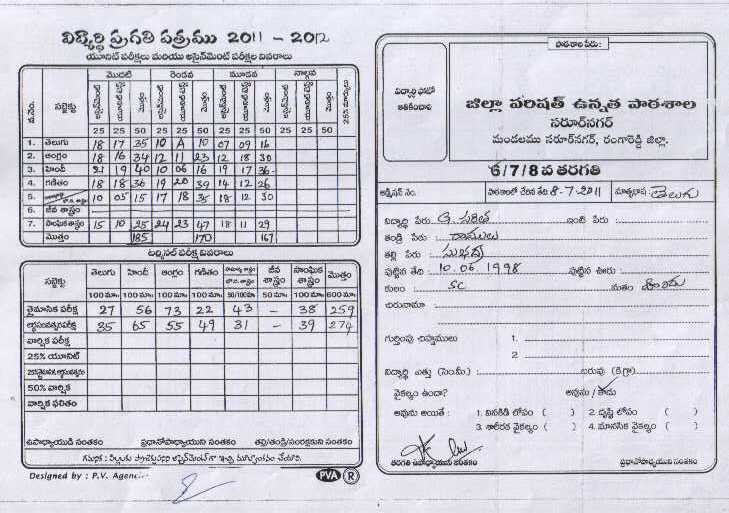 విద్యార్థి ప్రగతి పత్రము 2011 - 2012
యూనిట్ పరీక్షలు మరియు అసైన్‌మెంట్ పరీక్షల వివరాలు
వ.నెం. సబ్జెక్టు మొదటి రెండవ మూడవ నాల్గవ
అసైన్‌మెంట్ యూనిట్ టెస్ట్ మొత్తం అసైన్‌మెంట్ యూనిట్ టెస్ట్ మొత్తం అసైన్‌మెంట్ యూనిట్ టెస్ట్ మొత్తం అసైన్‌మెంట్ యూనిట్ టెస్ట్ మొత్తం
25 25 50 25 25 50 25 25 50 25 25 50
1. తెలుగు 18 17 35 10 A 10 07 09 16
2. ఆంగ్లం 18 16 34 12 11 23 12 18 30
3. హిందీ 21 19 40 10 06 16 19 17 36
4. గణితం 18 18 36 19 20 39 14 12 26
5. 10 05 15 17 18 35 18 12 30
6. జీవ శాస్త్రం
7. సాంఘికశాస్త్రం 15 10 25 24 23 47 18 11 29
మొత్తం 185 170 167
టర్మినల్ పరీక్ష వివరాలు
సబ్జెక్టు తెలుగు హిందీ ఆంగ్లం గణితం జీవ శాస్త్రం సాంఘిక శాస్త్రం మొత్తం
100 మా. 100 మా. 100 మా. 100 మా. 50/100మా. 50 మా. 100 మా. 600 మా.
త్రైమాసిక పరీక్ష 27 56 73 22 43 - 38 259
అర్ధసంవత్సరపరీక్ష 35 65 55 49 31 - 39 274
వార్షిక పరీక్ష
25% యూనిట్
50% వార్షిక
వార్షిక ఫలితం
ఉపాధ్యాయుడి సంతకం ప్రధానోపాధ్యాయుని సంతకం తల్లి/తండ్రి/సంరక్షకుని సంతకం
Designed by : P.V. Agenci PVA R
పాఠశాల పేరు:
విద్యార్థి ఫోటో అతికించాలి
జిల్లా పరిషత్ ఉన్నత పాఠశాల
సరూర్‌నగర్
మండలము సరూర్‌నగర్, రంగారెడ్డి జిల్లా.
6/7/8వ తరగతి
అడ్మిషన్ నెం. పాఠశాలలో చేరిన తేది 8-7-2011 మాతృభాష తెలుగు
విద్యార్థి పేరు G. సరిత ఇంటి పేరు
తండ్రి పేరు రాములు
తల్లి పేరు సుభద్ర
పుట్టిన తేది 10.06.1998 పుట్టిన ఊరు
కులం SC మతం హిందు
చిరునామా
గుర్తింపు చిహ్నములు 1.
2
విద్యార్థి ఎత్తు (సెం.మీ.) బరువు (కి.గ్రా)
వైకల్యం ఉందా? అవును / కాదు
అవును అయితే : 1. వినికిడి లోపం ( ) 2. దృష్టి లోపం ( )
3. శారీరక వైకల్యం ( ) 4. మానసిక వైకల్యం ( )
తరగతి ఉపాధ్యాయుని సంతకం ప్రధానోపాధ్యాయుని సంతకం